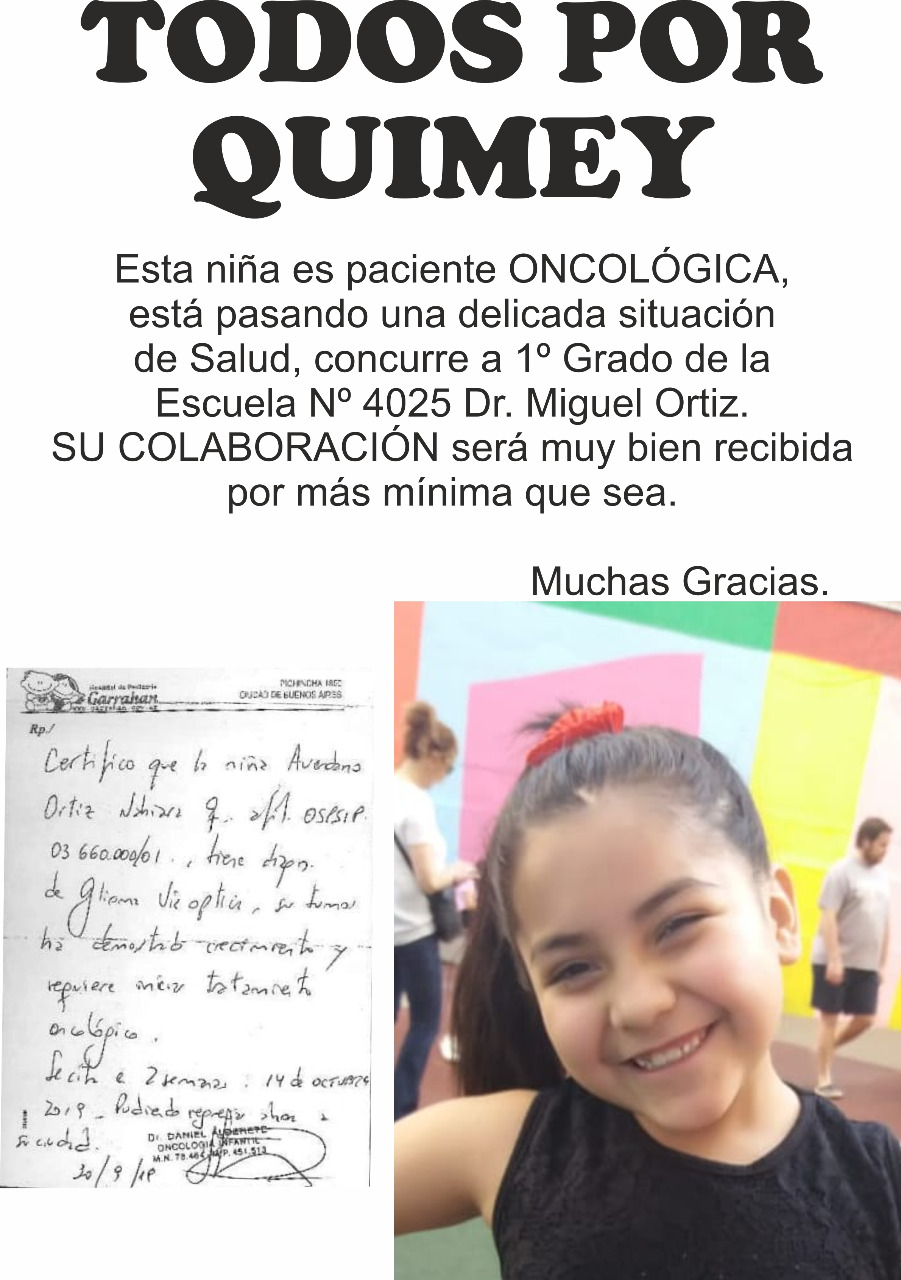 TODOS POR
QUIMEY
Esta niña es paciente ONCOLÓGICA,
está pasando una delicada situación
de Salud, concurre a 1º Grado de la
Escuela Nº 4025 Dr. Miguel Ortiz.
SU COLABORACIÓN será muy bien recibida
por más mínima que sea.
Muchas Gracias.
Hospital de Pediatría
Garrahan
PICHINCHA
CIUDAD DE BUENOS AIRES
Rp./
Certifico que la niña
Ortiz OSPSIP.
03 660.000/01. , tiene
de glioma vía óptica, su tumor
ha demostrado crecimiento y
requiere iniciar tratamiento
oncológico.
Se cita a 2 semanas : 14 de OCTUBRE
2019 - Pudiendo regresar ahora a
su ciudad.
Dr. DANIEL
ONCOLOGIA INFANTIL
30/9/19